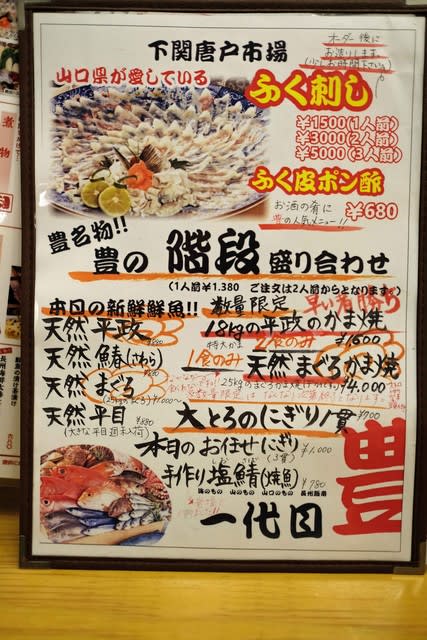 下関唐戸市場
オーダー後に
お造りします
(少しお時間下さい)
山口県が愛している
ふく刺し
¥1500(1人前)
¥3000(2人前)
¥5000(3人前)
ふく皮ポン酢
お酒の肴に
豊の人気メニュー!!
¥680
豊名物!!
豊の 階段 盛り合わせ
(1人前¥1.380 ご注文は2人前からとなります。)
本日の新鮮鮮魚!!
数量限定
早い者勝ち
天然 平政
18kgの平政のかま焼
2食のみ
¥1600
天然 鰆(さわら)
特大かま
1食のみ
天然まぐろかま焼
天然 まぐろ
25kgのまぐろかま焼
¥4.000
天然 平目 ¥880
(大きな平目週末入荷)
大とろのにぎり1貫 ¥700
本日のお任せにぎり
(3貫) ¥1,000
手作り塩鯖(焼魚)
¥780
海のもの 山のもの 山口のもの 長州藩南
豊
一代目